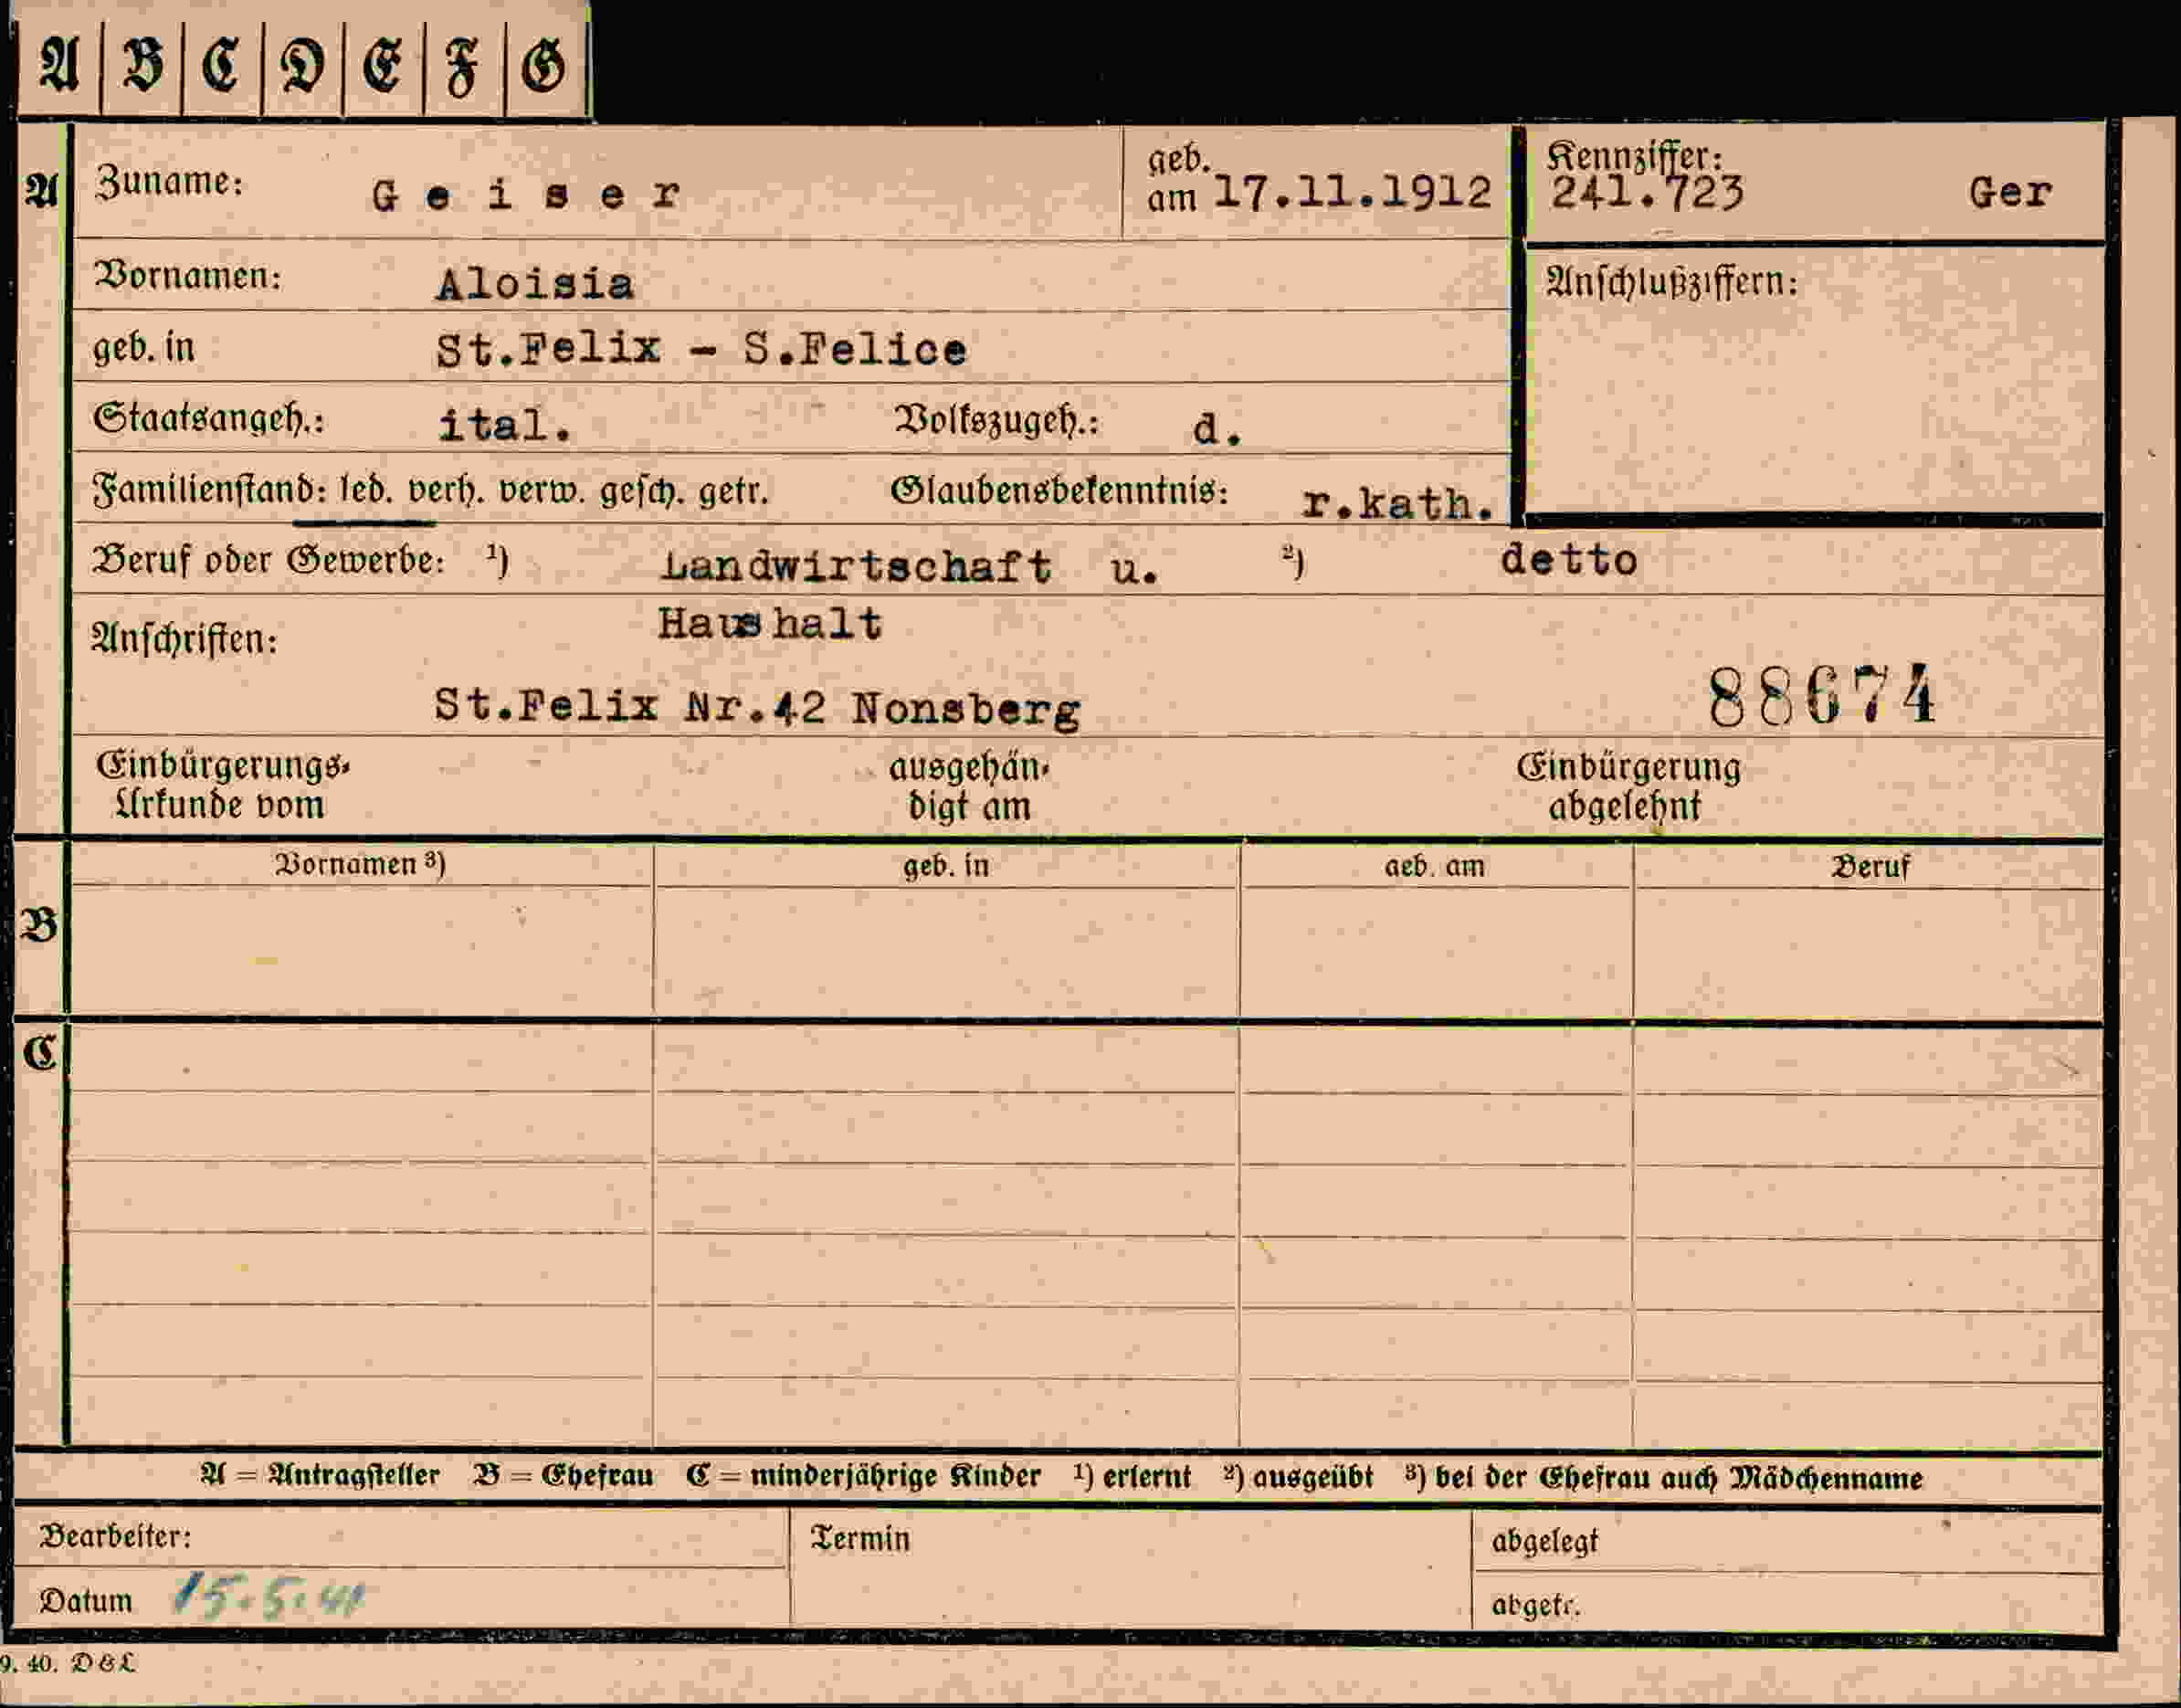 A B C D E F G
A Zuname: Geiser geb. am 17.11.1912 Kennziffer: 241.723 Ger
Vornamen: Aloisia Anschlußziffern:
geb. in St.Felix - S.Felice
Staatsangeh.: ital. Volkszugeh.: d.
Familienstand: led. verh. verw. gesch. getr. Glaubensbekenntnis: r.kath.
Beruf oder Gewerbe: 1) Landwirtschaft u. 2) detto
Haushalt
Anschriften:
St.Felix Nr.42 Nonsberg 88674
Einbürgerungs- ausgehän- Einbürgerung
Urkunde vom digt am abgelehnt
Vornamen 3) geb. in geb. am Beruf
B
C
A = Antragsteller B = Ehefrau C = minderjährige Kinder 1) erlernt 2) ausgeübt 3) bei der Ehefrau auch Mädchenname
Bearbeiter: Termin abgelegt
Datum 15.5.41 abgetr.
9. 40. D & L